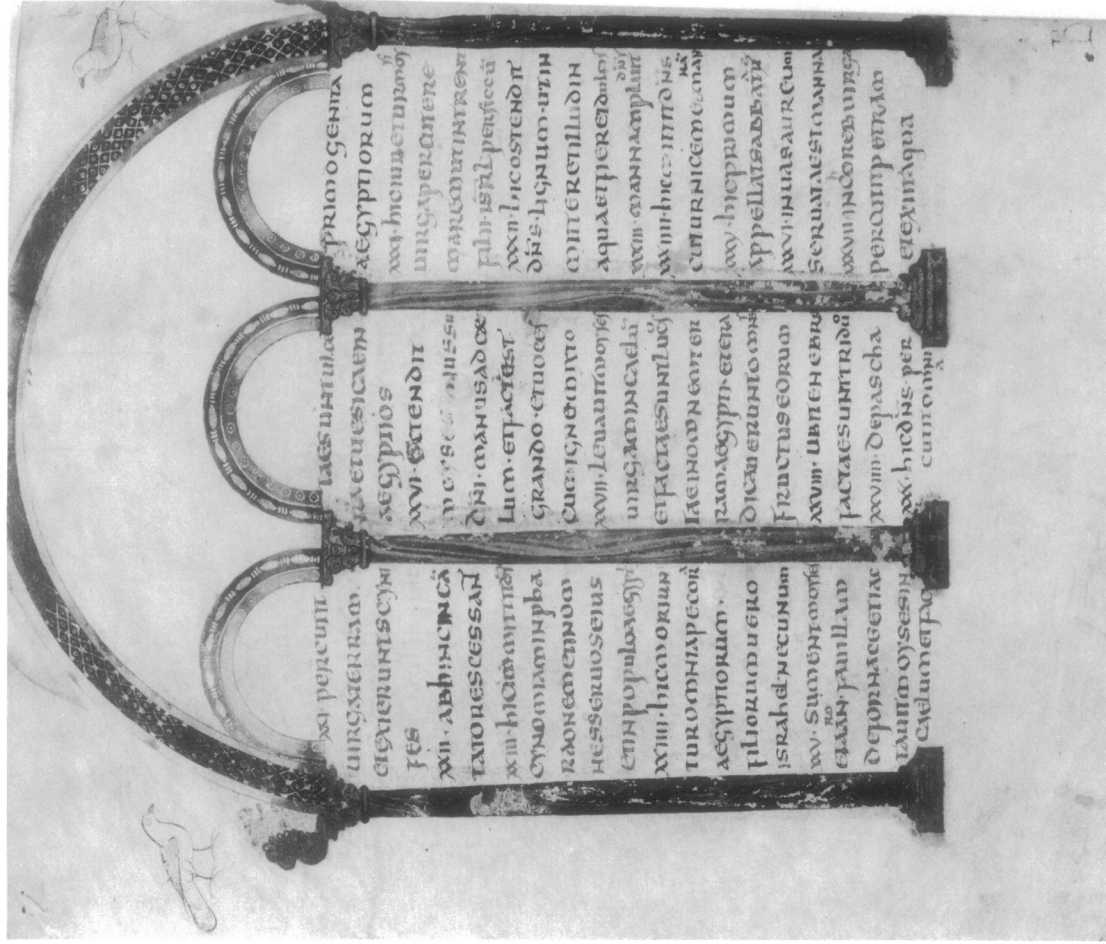 XXI PERCUTIT
UIRGATERRAM·
ETEXIERUNTSCYNI
FES
XXII· ABHINCINCĀ
TATORESCESSANT
XXIII·HIC
CYNOMIAMINPHA
RAONEMETINOM
NESSERUOSEIUS
ETINPOPULOAEGYPTI
XXIIII·HICMORIUN
TUROMNIAPECORA
AEGYPTIORUM·
FILIORUMUERO
ISRAHELNECUNUM
XXV·SUMENTMOYSES
ETAARON FAUILLAM
DEFORNACEETIAC
TAUITMOYSESIN
CAELUMETFAC
TAESUNTULCE
RAETUESICAEIN
AEGYPTIOS
XXVI·EXTENDIT
MOYSES IUSSU
DN̄I·MANUSADCAE
LUM·ETFACTEST
GRANDO·ETUOCES
CUMIGNEMIXTO
XXVII·LEUAUITMOYSES
UIRGAMINCAELŪ
ETFACTAESUNTLUCUS
TAEINOMNEMTER
RAMAEGYPTI·ETERA
DICAUERUNTOMNS
FRUCTUSEORUM
XXVIII·UBITENEBRE
FACTAESUNTTRIDUO
XXVIIII·DEPASCHA
XXX·HICDN̄S·PER
CUTITOMNIA
PRIMOGENITA
AEGYPTIORUM
XXXI·HICIUBETURMOYS
UIRGAPERCUTERE
MAREMUTINTRENT
FILII·ISRL̄·PERSICCŪ
XXXII·HICOSTENDIT
DN̄S·LIGNUM·UTIN
MITTERETILLUDIN
AQUAETFIERETDULCIS
XXXIII·MANNAMPLUIT DN̄S
XXXIIII·HIC MITTITDN̄S
COTURNICEMETMANNĀ
XXXV·HICPRIMUM
APPELLATSABBATIS
XXXVI·INUASAUREUM
SERUATAESTMANNA
XXXVII·INCHOREBUIRGA
PERCUTITPETRAM
ETEXIITAQUA